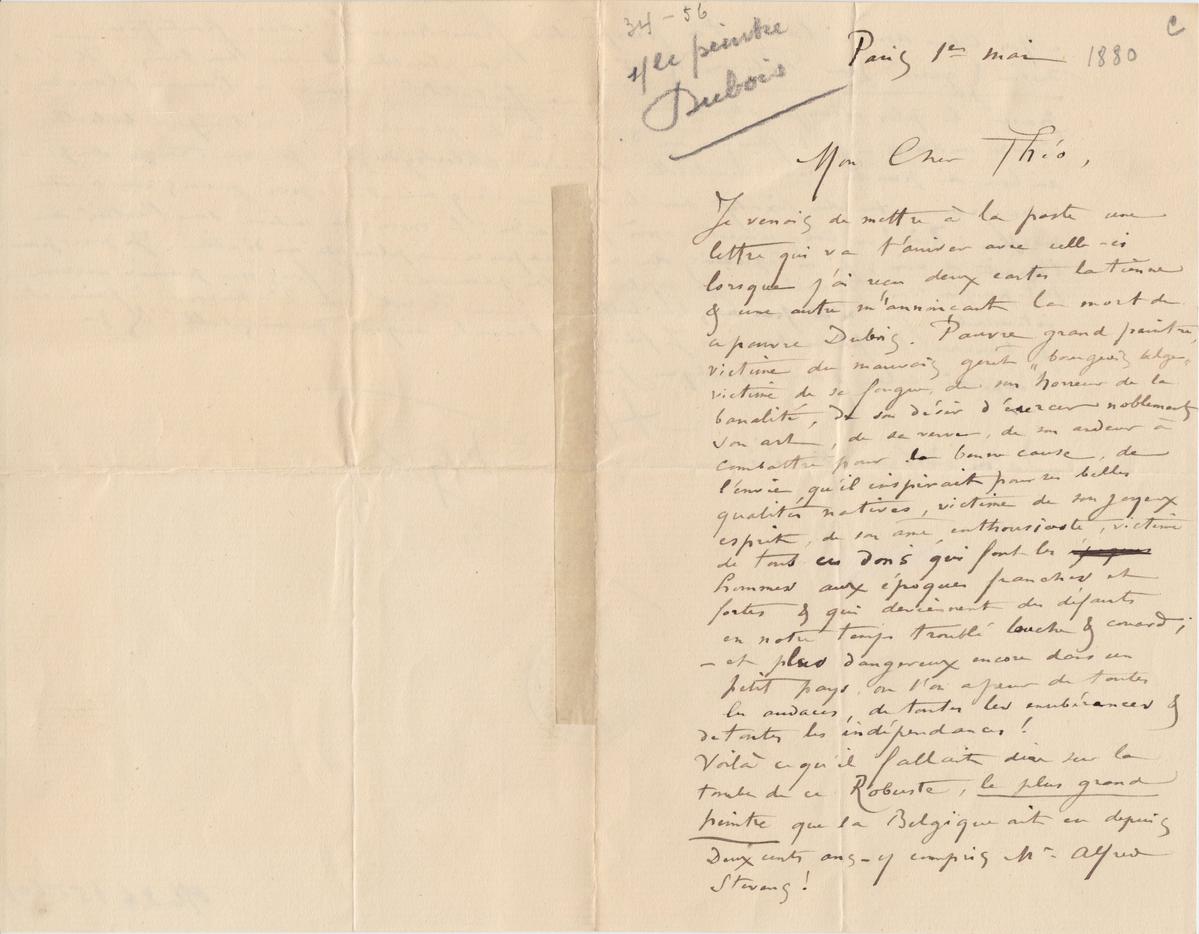 34 - 56
le peintre
Dubois
C
Paris 1er mai 1880
Mon Cher Théo,
Je venais de mettre à la poste une
lettre qui va t'arriver avec celle-ci
lorsque j'ai reçu deux cartes la tienne
& une autre m'annoncant la mort de
ce pauvre Dubois. Pauvre grand peintre,
victime du mauvais goût "bourgeois belge"
victime de sa fougue, de son horreur de la
banalité, de son désir d'exercer noblement
son art, de sa verve, de son ardeur à
combattre pour la bonne cause, de
l'envie qu'il inspirait pour ses belles
qualités natives, victime de son joyeux
esprit, de son âme enthousiaste, victime
de tous ces dons qui font les
hommes aux époques franches et
fortes & qui deviennent des défauts
en notre temps troublé louche & couard;
- et plus dangereux encore dans un
petit pays, ou l'on a peur de toutes
les audaces, de toutes les exubérances &
de toutes les indépendances!
Voilà ce qu'il fallait dire sur la
tombe de ce Robuste, le plus grand
peintre que la Belgique ait eu depuis
Deux cents ans - y compris Mr Alfred
Stevens!